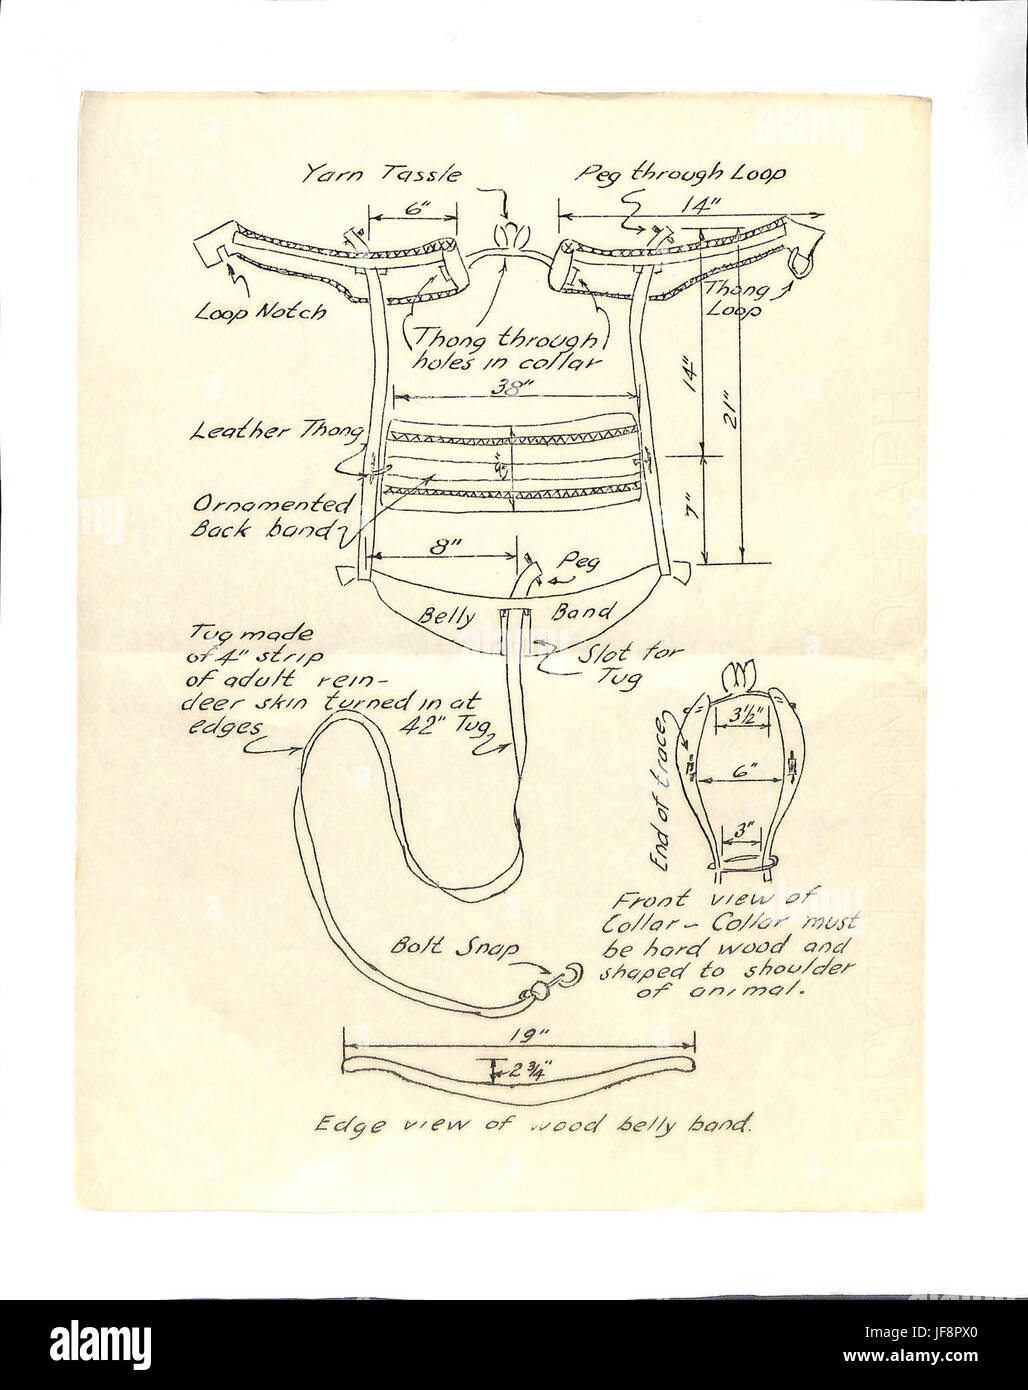 Yarn Tassle
Peg through Loop
6"
14"
Loop Notch
Thong through
holes in collar
Thong
Loop
38"
14"
21"
Leather Thong
8"
Ornamented
Back band
7"
8"
Peg
Belly Band
Tug made
of 4" strip
of adult rein-
deer skin turned in at
edges
42" Tug
Slot for
Tug
3½"
End of trace
6"
3"
Front view of
Collar - Collar must
be hard wood and
shaped to shoulder
of animal.
Bolt Snap
19"
2¾"
Edge view of wood belly band.
alamy
Image ID: JF8PX0
www.alamy.com